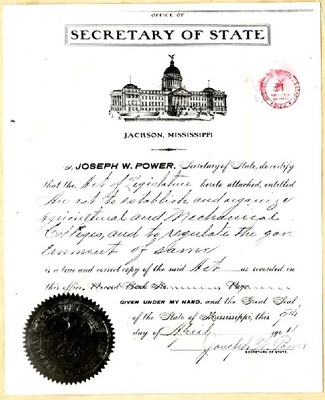 OFFICE OF
SECRETARY OF STATE
JACKSON, MISSISSIPPI
I, JOSEPH W. POWER, Secretary of State, do certify
that the Act of Legislature hereto attached, entitled
An act to establish and organize
Agricultural and Mechanical
Colleges, and to regulate the gov
ernment of same
is a true and correct copy of the said Act as recorded in
this office, Record Book Page
GIVEN UNDER MY HAND, and the Great Seal
of the State of Mississippi, this 9th
day of 19
Joseph W. Power
SECRETARY OF STATE.